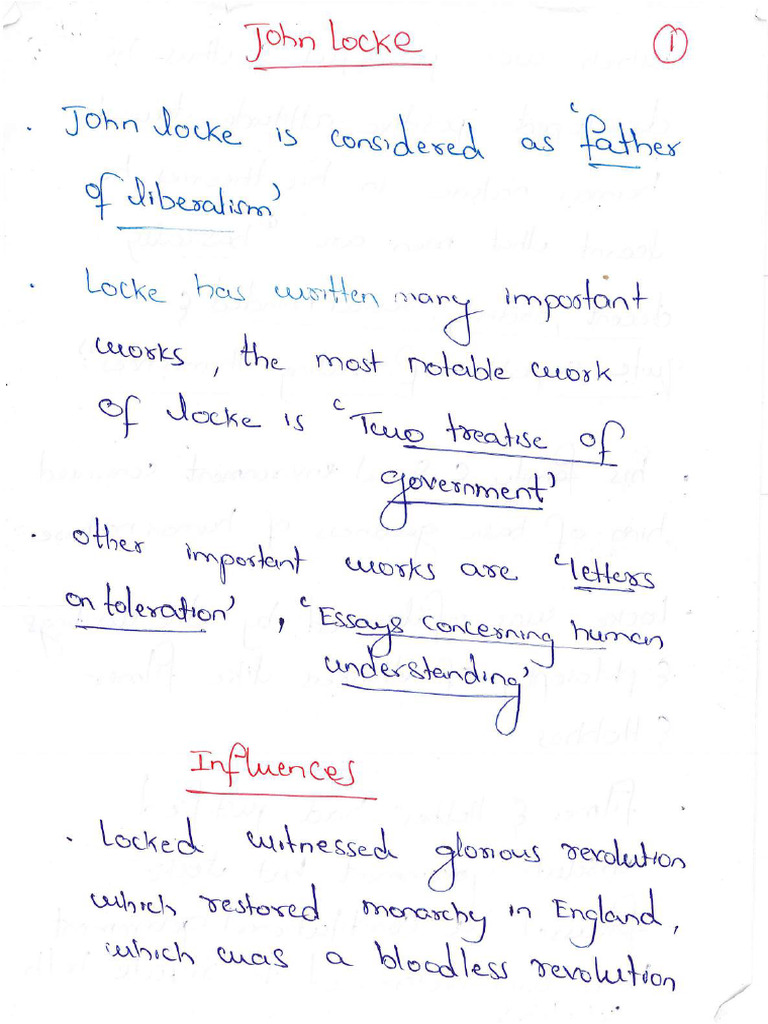 John Locke
1
. John locke is considered as 'father
of liberalism'
. Locke has written many important
works, the most notable work
of locke is 'Two treatise of
government'
. Other important works are 'letters
on toleration', 'Essays concerning human
understanding'
Influences
. Locked witnessed glorious revolution
which restored monarchy in England,
which was a bloodless revolution